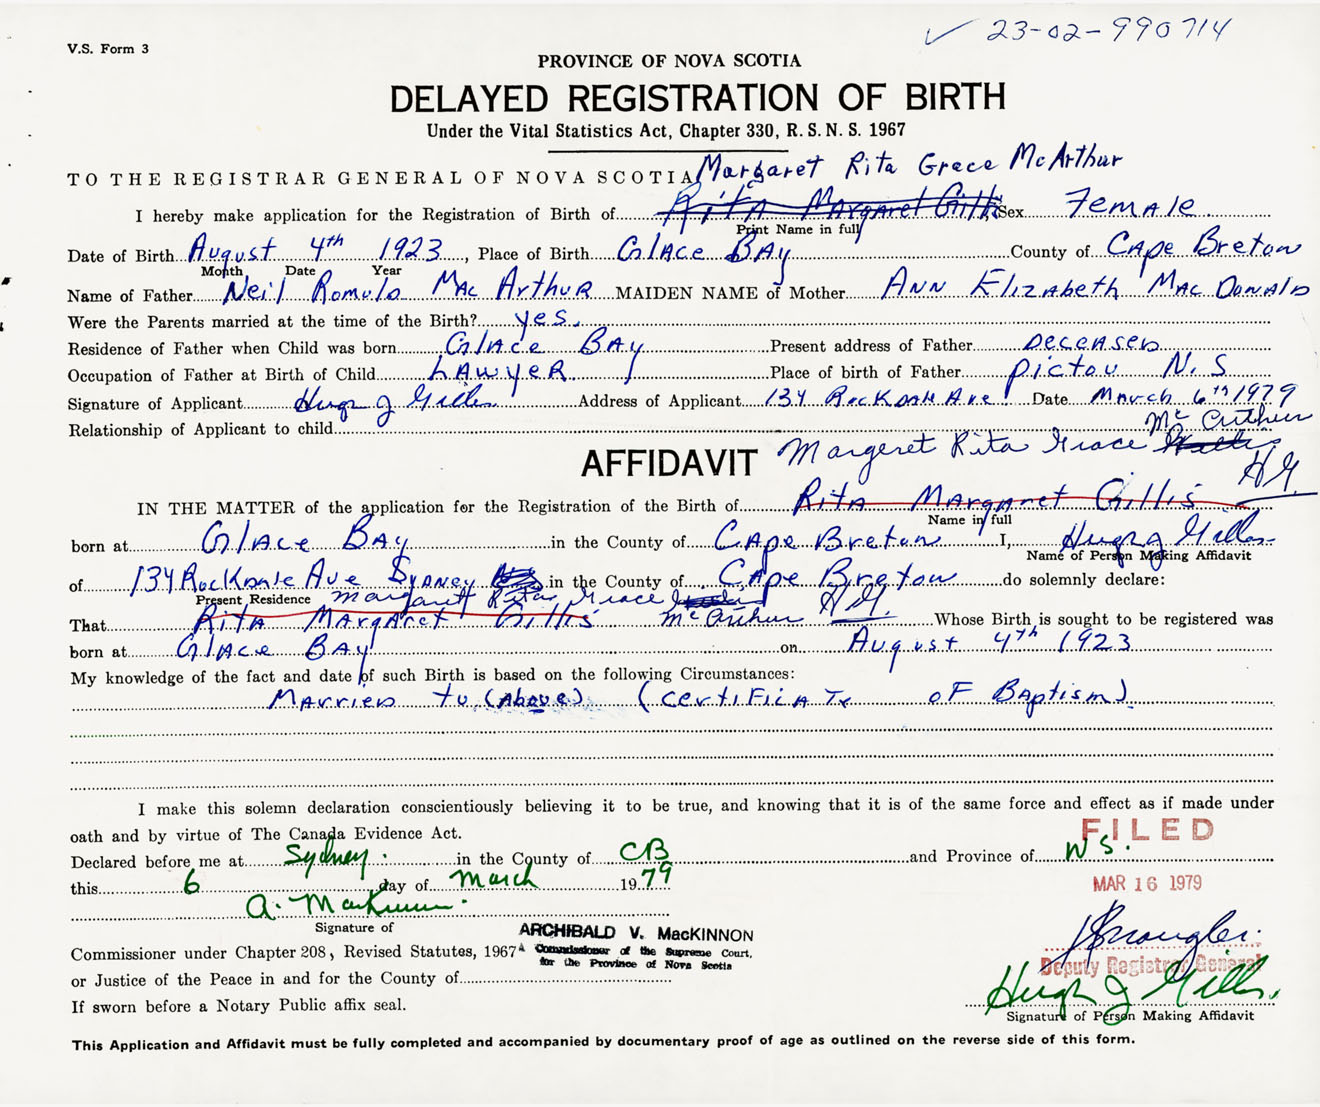 ✓ 23-02-990714
V.S. Form 3
PROVINCE OF NOVA SCOTIA
DELAYED REGISTRATION OF BIRTH
Under the Vital Statistics Act, Chapter 330, R.S.N.S. 1967
Margaret Rita Grace McArthur
TO THE REGISTRAR GENERAL OF NOVA SCOTIA
I hereby make application for the Registration of Birth of Rita Margaret Gillis Sex Female
Print Name in full
Date of Birth August 4th 1923, Place of Birth Glace Bay County of Cape Breton
Month Date Year
Name of Father Neil Romulo Mac Arthur MAIDEN NAME of Mother Ann Elizabeth MacDonald
Were the Parents married at the time of the Birth? yes.
Residence of Father when Child was born Glace Bay Present address of Father Deceased
Occupation of Father at Birth of Child Lawyer Place of birth of Father Pictou N.S
Signature of Applicant Hugh J Gillis Address of Applicant 134 Rockdale Ave Date March 6th 1979
Relationship of Applicant to child
Mc Arthur
AFFIDAVIT Margeret Rita Grace
H.G.
IN THE MATTER of the application for the Registration of the Birth of Rita Margaret Gillis
Name in full
born at Glace Bay in the County of Cape Breton I, Hugh J Gillis
Name of Person Making Affidavit
of 134 Rockdale Ave Sydney in the County of Cape Breton do solemnly declare:
Present Residence Margaret Rita Grace
That Rita Margaret Gillis McArthur H.G. Whose Birth is sought to be registered was
born at Glace Bay on August 4th 1923
My knowledge of the fact and date of such Birth is based on the following Circumstances:
Married to (Above) (Certificate of Baptism)
I make this solemn declaration conscientiously believing it to be true, and knowing that it is of the same force and effect as if made under
oath and by virtue of The Canada Evidence Act.
FILED
Declared before me at Sydney. in the County of CB and Province of NS.
this 6 day of March 1979
MAR 16 1979
A. MacKinnon.
Signature of
ARCHIBALD V. MacKINNON
Commissioner under Chapter 208, Revised Statutes, 1967
A Commissioner of the Supreme Court,
for the Province of Nova Scotia
Deputy Registrar General
or Justice of the Peace in and for the County of
Hugh J Gillis.
If sworn before a Notary Public affix seal.
Signature of Person Making Affidavit
This Application and Affidavit must be fully completed and accompanied by documentary proof of age as outlined on the reverse side of this form.